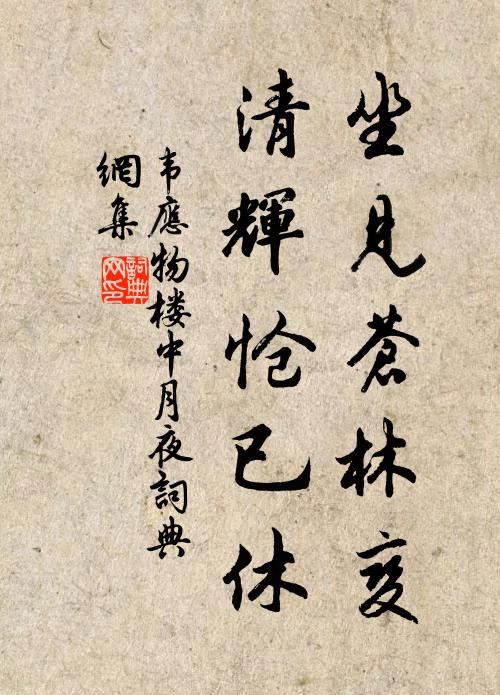 坐見蒼林变
清輝怆已休
韦應物楼中月夜詞典
網集
詞典
网印